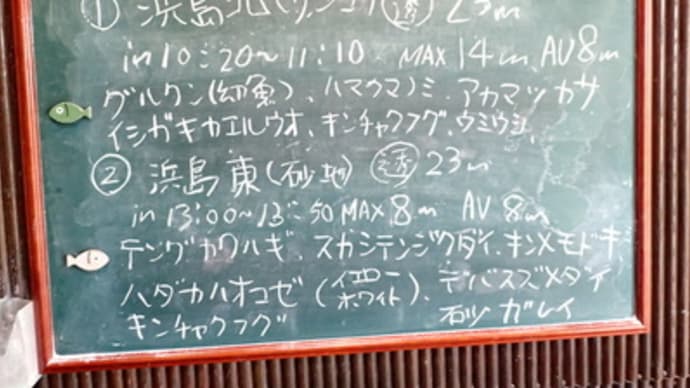 ① 浜島北(サンゴ) 透 23m
in 10:20~11:10 MAX 14m AV 8m
グルクン(幼魚)、ハマクマノミ、アカマツカサ
イシガキカエルウオ、キンチャクフグ、ウミウシ
② 浜島東(砂地) 透 23m
in 13:00~13:50 MAX 8m AV 8m
テングカワハギ、スカシテンジクダイ、キンメモドキ
ハダカハオコゼ(イエローホワイト)、デバスズメダイ
キンチャクフグ ガレイ